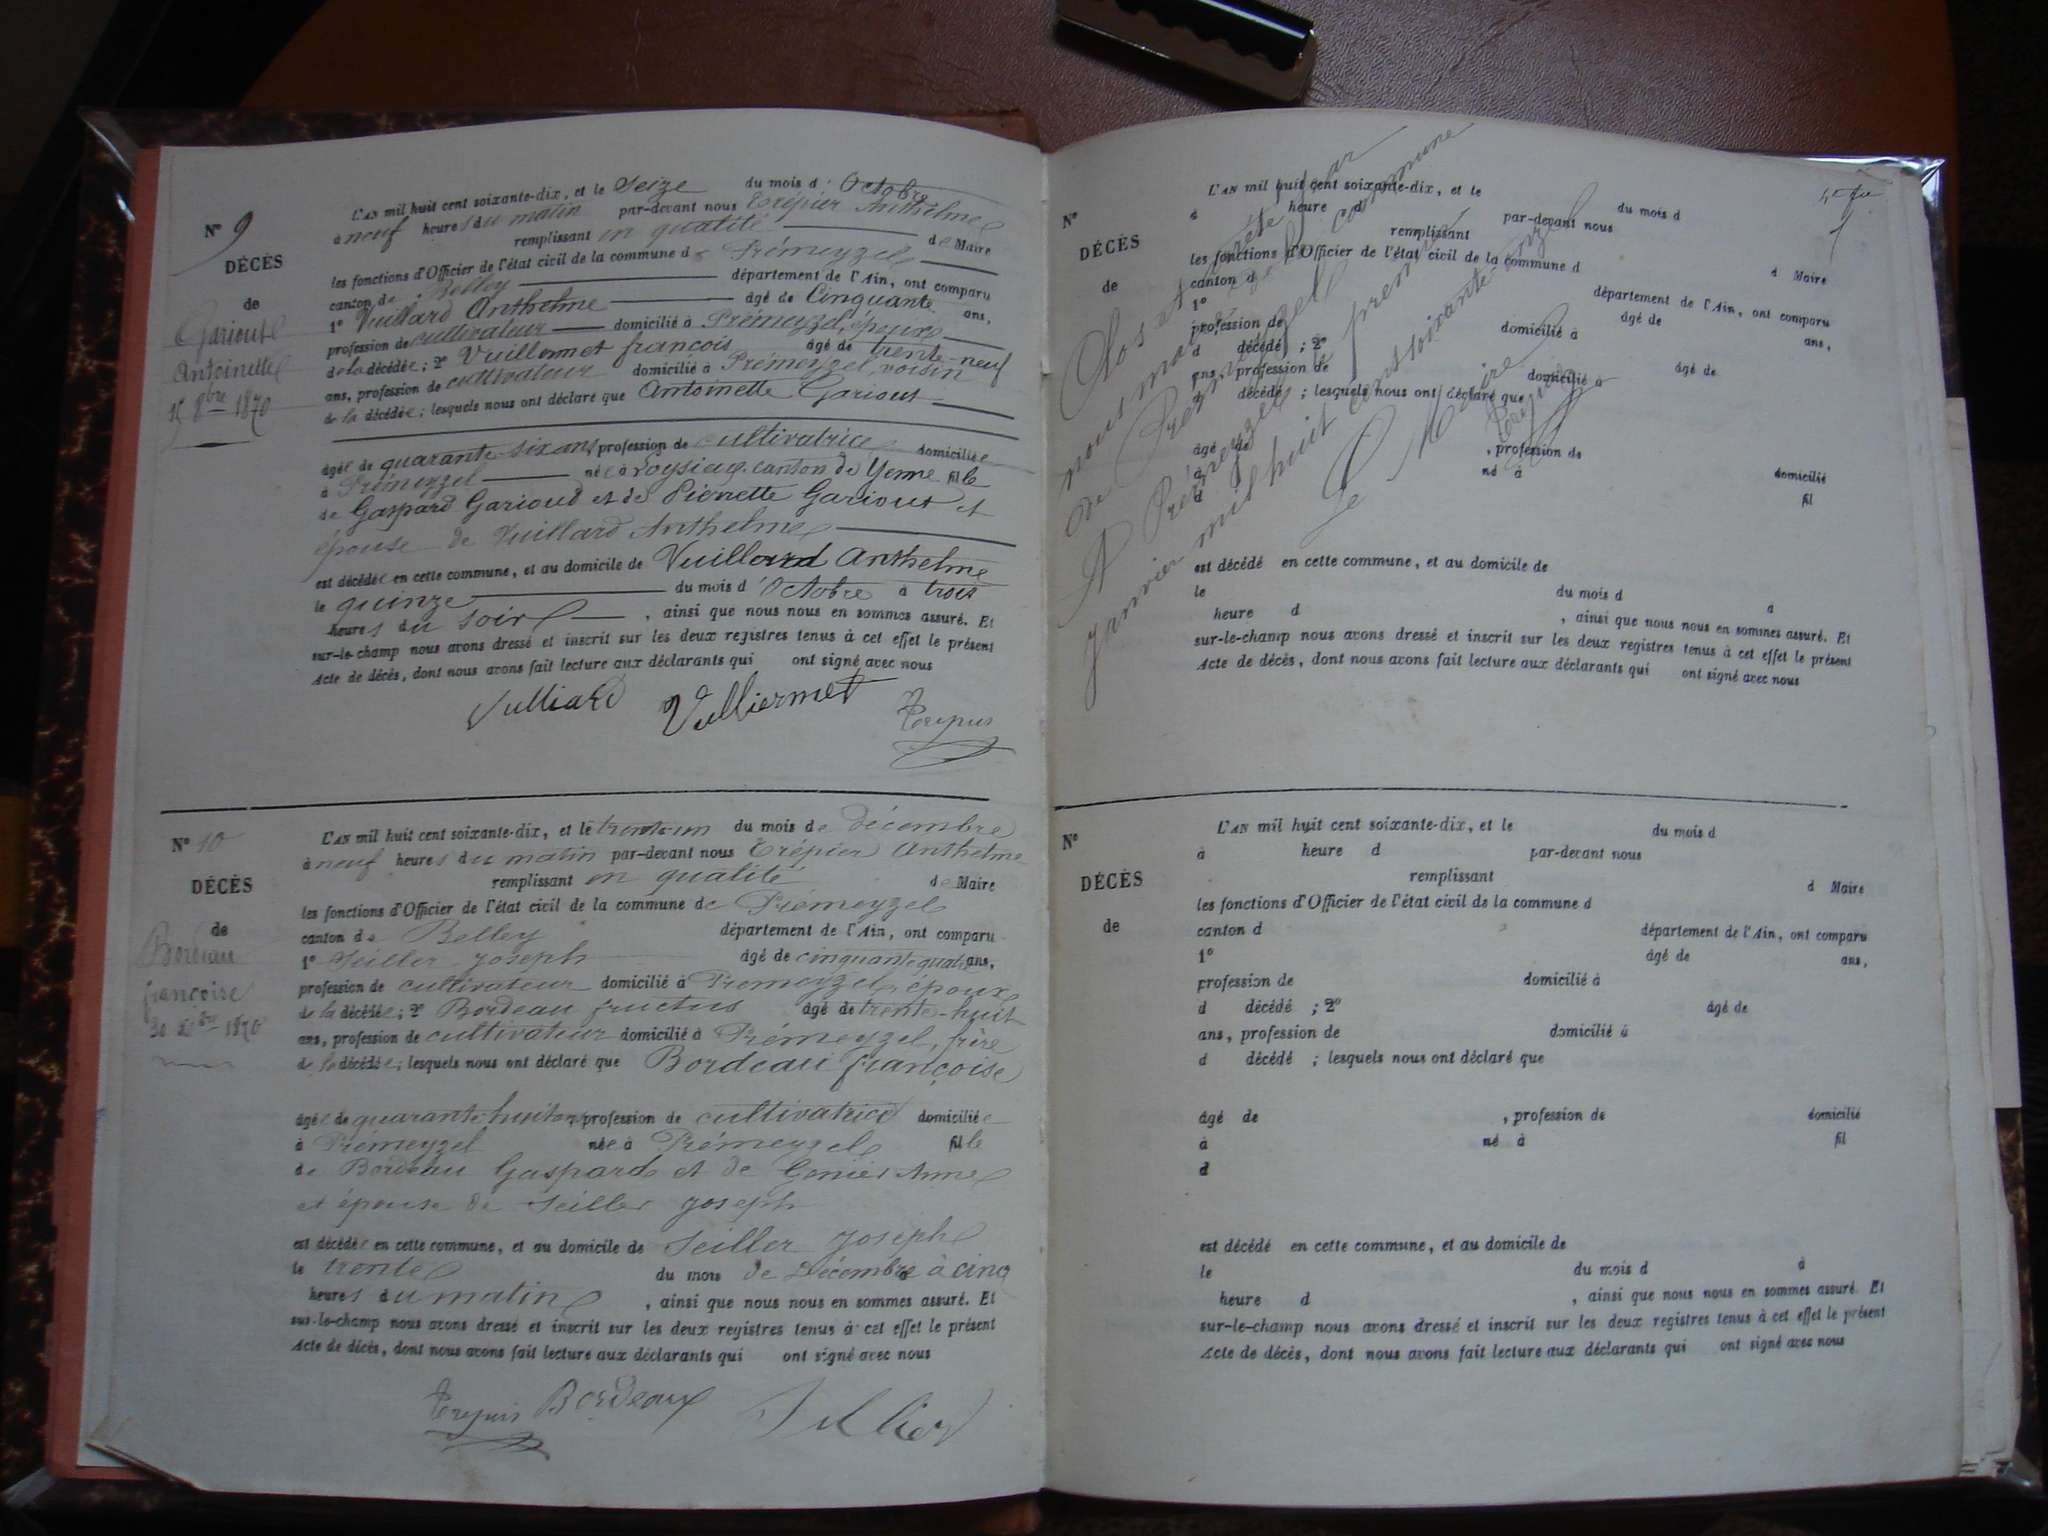 N° 9
DÉCÈS
de
Gariout
Antoinette
15 8bre 1870
L'AN mil huit cent soixante-dix, et le Seize du mois d'Octobre
à neuf heures du matin par-devant nous Trépier Anthelme
remplissant en qualité de Maire
les fonctions d'Officier de l'état civil de la commune de Prémeyzel
canton de Belley département de l'Ain, ont comparu
1° Vuillard Anthelme âgé de Cinquante ans,
profession de cultivateur domicilié à Prémeyzel, époux
de la décédée ; 2° Vuillermet françois âgé de trente-neuf
ans, profession de cultivateur domicilié à Prémeyzel, voisin
de la décédée ; lesquels nous ont déclaré que Antoinette Gariout
âgée de quarante-six ans profession de cultivatrice domiciliée
à Prémeyzel née à Loysieg. canton de Yenne fille
de Gaspard Garioud et de Pierrette Gariout et
épouse de Vuillard Anthelme
est décédée en cette commune, et au domicile de Vuillard Anthelme
le quinze du mois d'Octobre à trois
heures du soir , ainsi que nous nous en sommes assuré. Et
sur-le-champ nous avons dressé et inscrit sur les deux registres tenus à cet effet le présent
Acte de décès, dont nous avons fait lecture aux déclarants qui ont signé avec nous
Vulliard Vulliermet Trepier
N° 10
DÉCÈS
de
Bordeau
françoise
30 Xbre 1870
L'AN mil huit cent soixante-dix, et le trente-un du mois de décembre
à neuf heures du matin par-devant nous Trépier Anthelme
remplissant en qualité de Maire
les fonctions d'Officier de l'état civil de la commune de Prémeyzel
canton de Belley département de l'Ain, ont comparu
1° Seiller Joseph âgé de cinquante quatre ans,
profession de cultivateur domicilié à Prémeyzel, époux
de la décédée ; 2° Bordeau fructus âgé de trente-huit
ans, profession de cultivateur domicilié à Prémeyzel, frère
de la décédée ; lesquels nous ont déclaré que Bordeau françoise
âgée de quarante-huit ans profession de cultivatrice domiciliée
à Prémeyzel née à Prémeyzel fille
de Bordeau Gaspard et de Genies Anne
et épouse de Seiller Joseph
est décédée en cette commune, et au domicile de Seiller Joseph
le trente du mois de Décembre à cinq
heures du matin , ainsi que nous nous en sommes assuré. Et
sur-le-champ nous avons dressé et inscrit sur les deux registres tenus à cet effet le présent
Acte de décès, dont nous avons fait lecture aux déclarants qui ont signé avec nous
Trepier Bordeaux
N°
DÉCÈS
de
L'AN mil huit cent soixante-dix, et le du mois d
à heure d par-devant nous
remplissant d Maire
les fonctions d'Officier de l'état civil de la commune d
canton d département de l'Ain, ont comparu
1° âgé de ans,
profession de domicilié à
d décédé ; 2° âgé de
ans, profession de domicilié à
d décédé ; lesquels nous ont déclaré que
âgé de , profession de domicilié
à né à fil
d
est décédé en cette commune, et au domicile de
le du mois d à
heure d , ainsi que nous nous en sommes assuré. Et
sur-le-champ nous avons dressé et inscrit sur les deux registres tenus à cet effet le présent
Acte de décès, dont nous avons fait lecture aux déclarants qui ont signé avec nous
Clos et arrêté par
nous maire de la commune
de Prémeyzel
A Prémeyzel le premier
janvier mil huit cent soixante-onze
Le Maire
Trepier
N°
DÉCÈS
de
L'AN mil huit cent soixante-dix, et le du mois d
à heure d par-devant nous
remplissant d Maire
les fonctions d'Officier de l'état civil de la commune d
canton d département de l'Ain, ont comparu
1° âgé de ans,
profession de domicilié à
d décédé ; 2° âgé de
ans, profession de domicilié à
d décédé ; lesquels nous ont déclaré que
âgé de , profession de domicilié
à né à fil
d
est décédé en cette commune, et au domicile de
le du mois d à
heure d , ainsi que nous nous en sommes assuré. Et
sur-le-champ nous avons dressé et inscrit sur les deux registres tenus à cet effet le présent
Acte de décès, dont nous avons fait lecture aux déclarants qui ont signé avec nous